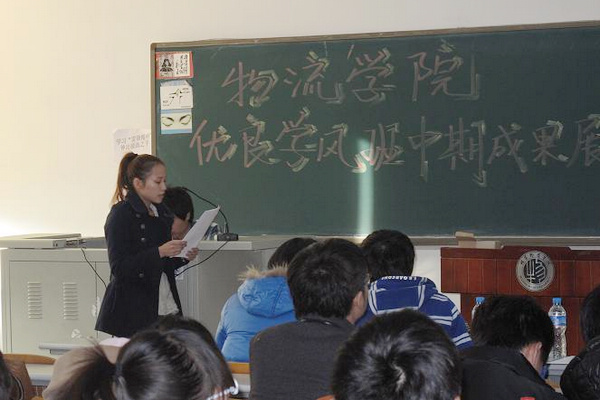 物流学院
优良学风班中期成果展